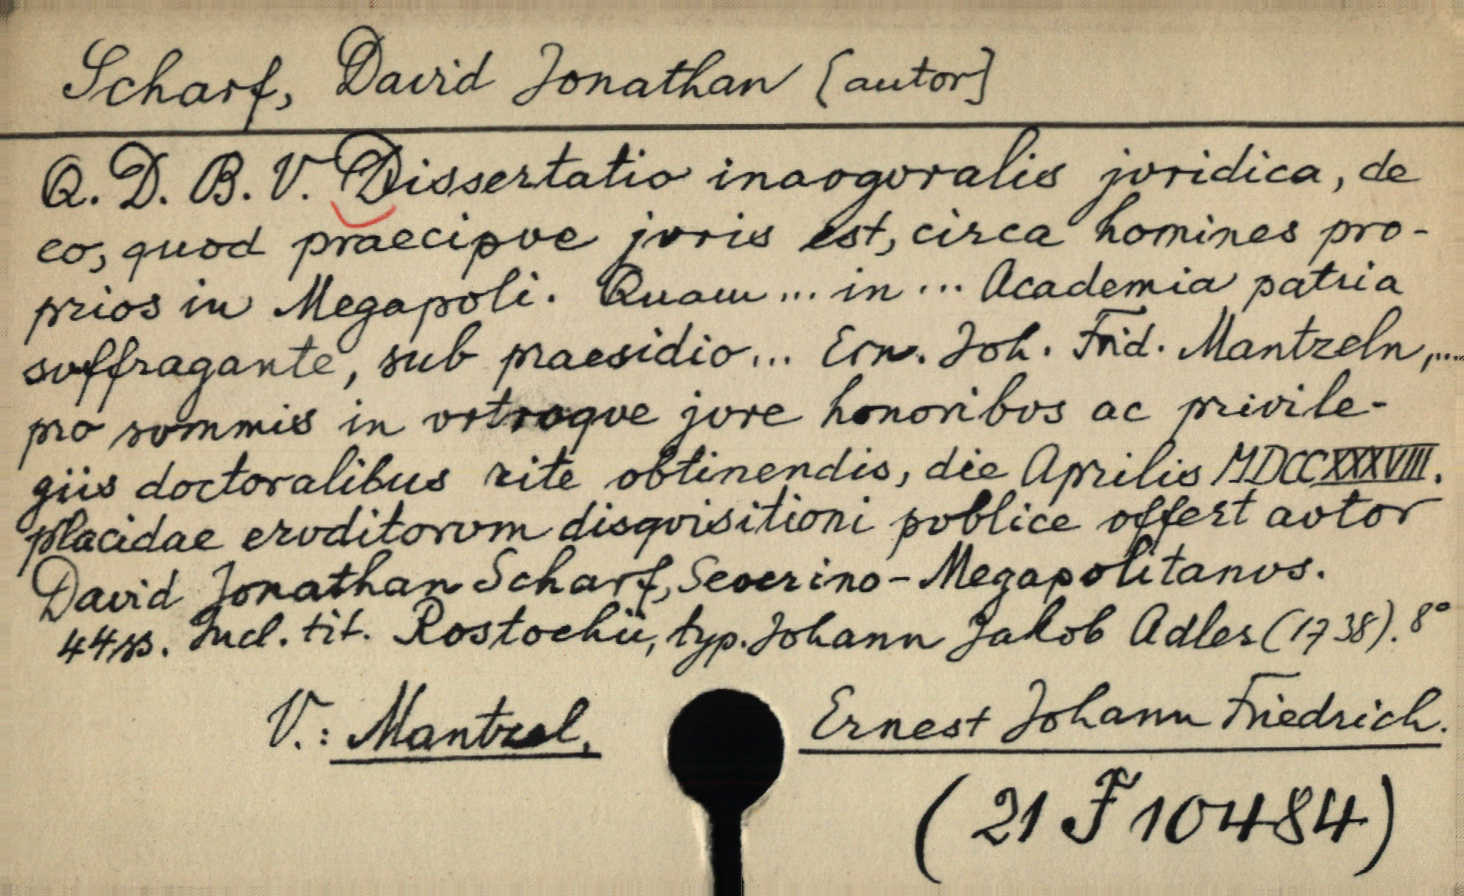 Scharf, David Jonathan [autor]
Q. D. B. V. Dissertatio inaoguralis joridica, de
eo, quod praecipoe joris est, circa homines pro-
prios in Megapoli. Quam ... in ... Academia patria
soffragante, sub praesidio ... Ern. Joh. Frid. Mantzeln, ....
pro sommis in vrtroqoe jore honoribos ac privile-
giis doctoralibus rite obtinendis, die Aprilis MDCCXXXVIII.
placidae eroditorom disqoisitioni poblice offert aotor
David Jonathan Scharf, Severino-Megapolitanos.
44 ss. Incl. tit. Rostochii, typ. Johann Jakob Adler (1738). 8°
V.: Mantzel, Ernest Johann Friedrich.
(21 F 10484)